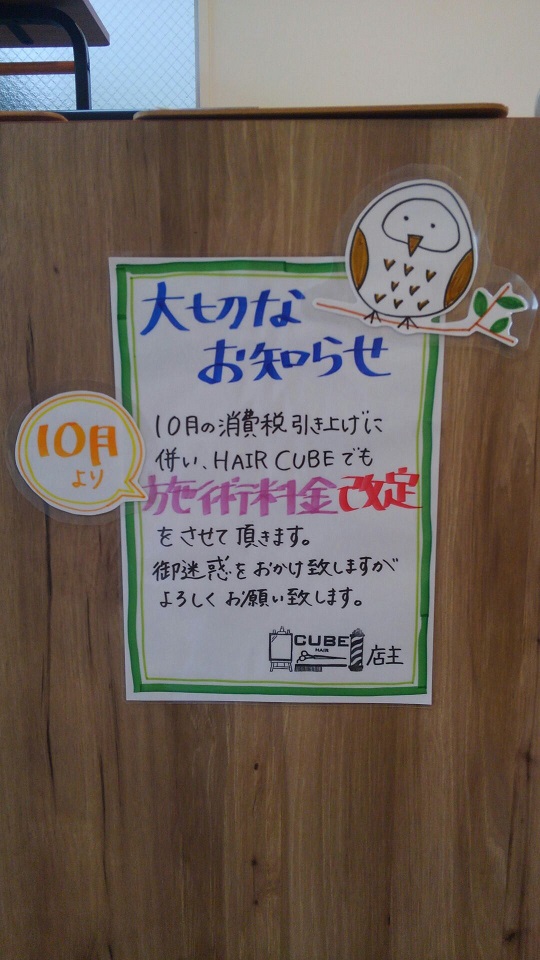 大切な
お知らせ
10月
より
10月の消費税引き上げに
併い、HAIR CUBEでも
施術料金改定
をさせて頂きます。
御迷惑をおかけ致しますが
よろしくお願い致します。
CUBE
HAIR
店主